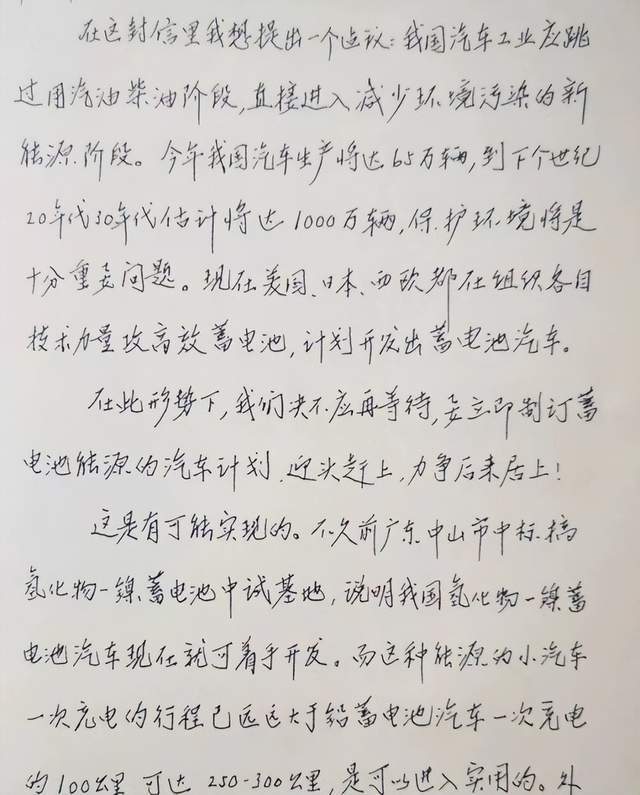 在这封信里我想提出一个建议：我国汽车工业应跳
过用汽油柴油阶段，直接进入减少环境污染的新
能源阶段。今年我国汽车生产将达65万辆，到下个世纪
20年代30年代估计将达1000万辆，保护环境将是
十分重要问题。现在美国、日本、西欧都在组织各自
技术力量攻高效蓄电池，计划开发出蓄电池汽车。
在此形势下，我们决不应再等待，要立即制订蓄
电池能源的汽车计划，迎头赶上，力争后来居上！
这是有可能实现的。不久前广东中山市中标搞
氢化物—镍蓄电池中试基地，说明我国氢化物—镍蓄
电池汽车现在就可着手开发。而这种能源的小汽车
一次充电的行程已远远大于铅蓄电池汽车一次充电
的100公里，可达250-300公里，是可以进入实用的。外